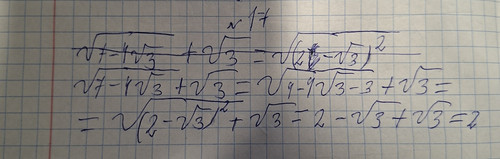 № 17
√7-4√3 + √3 = √(2-√3)²
√7-4√3 + √3 = √4-4√3-3 + √3 =
= √(2-√3)² + √3 = 2-√3+√3 = 2